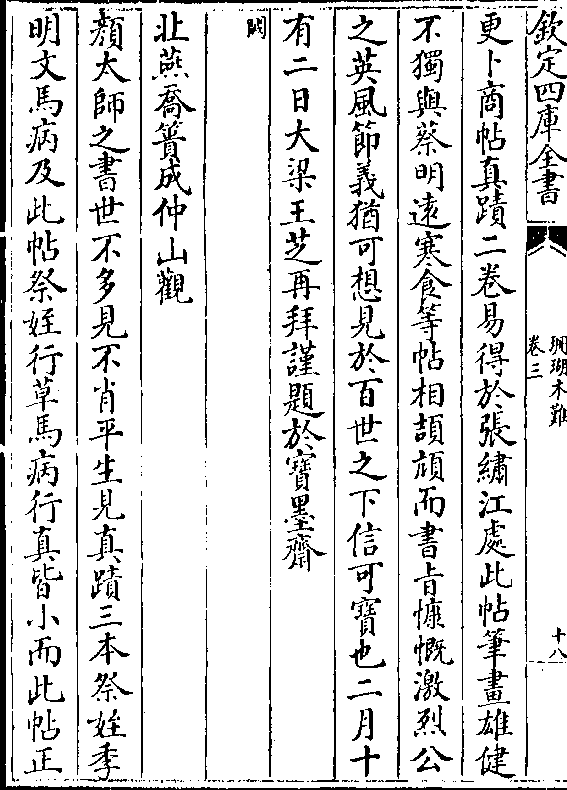 欽定四庫全書
珊瑚木難
卷三
十八
更卜商帖真蹟二卷易得於張繡江處此帖筆畫雄健
不獨與蔡明遠寒食等帖相頡頏而書旨慷慨激烈公
之英風節義猶可想見於百世之下信可寶也二月十
有二日大梁王芝再拜謹題於寶墨齋
闕
北燕喬簣成仲山觀
顔太師之書世不多見不肖平生見真蹟三本祭姪季
明文馬病及此帖祭姪行草馬病行真皆小而此帖正